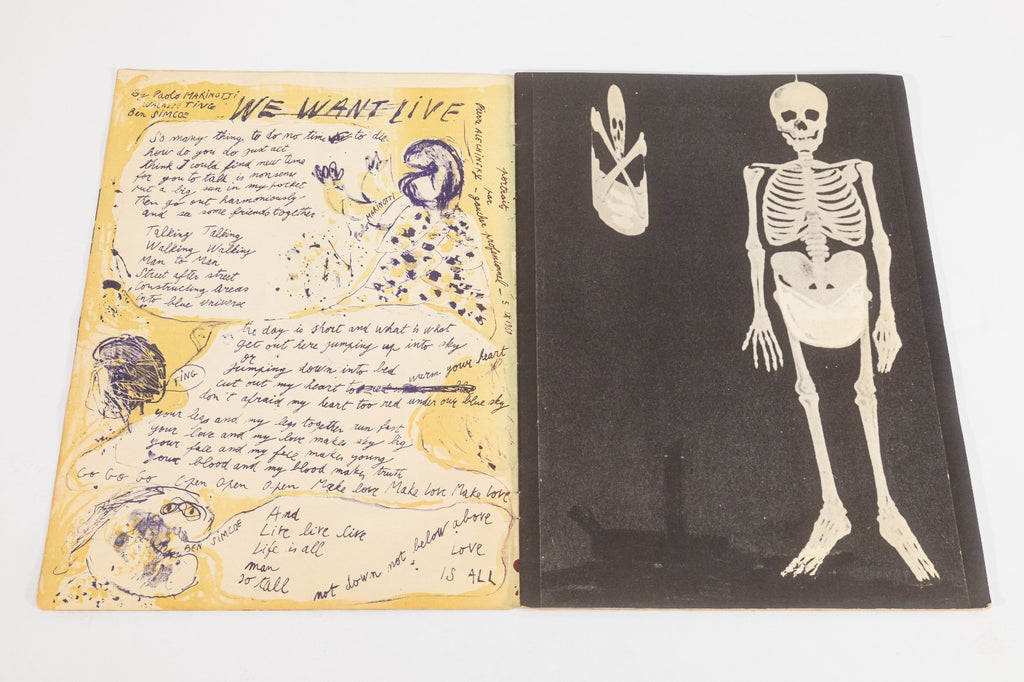 By Paolo MARINOTTI
WALASSE TING
Ben SIMCOE
WE WANT LIVE
So many thing to do no time to die
how do you do just act
think I could find new time
for you to talk is nonsense
put a big sun in my pocket
Then go out harmoniously
and see some friends together
Talking Talking
Walking Walking
Man to Man
Street after street
constructing areas
into blue universe
MARINOTTI
Pierre ALECHINSKY - gaucher professionnel - 5 IX 1961
portraits par
The day is short and what is what
get out here jumping up into sky
or
Jumping down into bed
cut out my heart warm your heart
don't afraid my heart too red under our blue sky
TING
your legs and my legs together run fast
your love and my love makes sky big
your face and my face makes young
your blood and my blood makes truth
Go Go Go Open Open Open Make love Make Love Make Love
BEN SIMCOE
And
Live live live
Life is all
man
so tall
not down not below above
LOVE
IS ALL